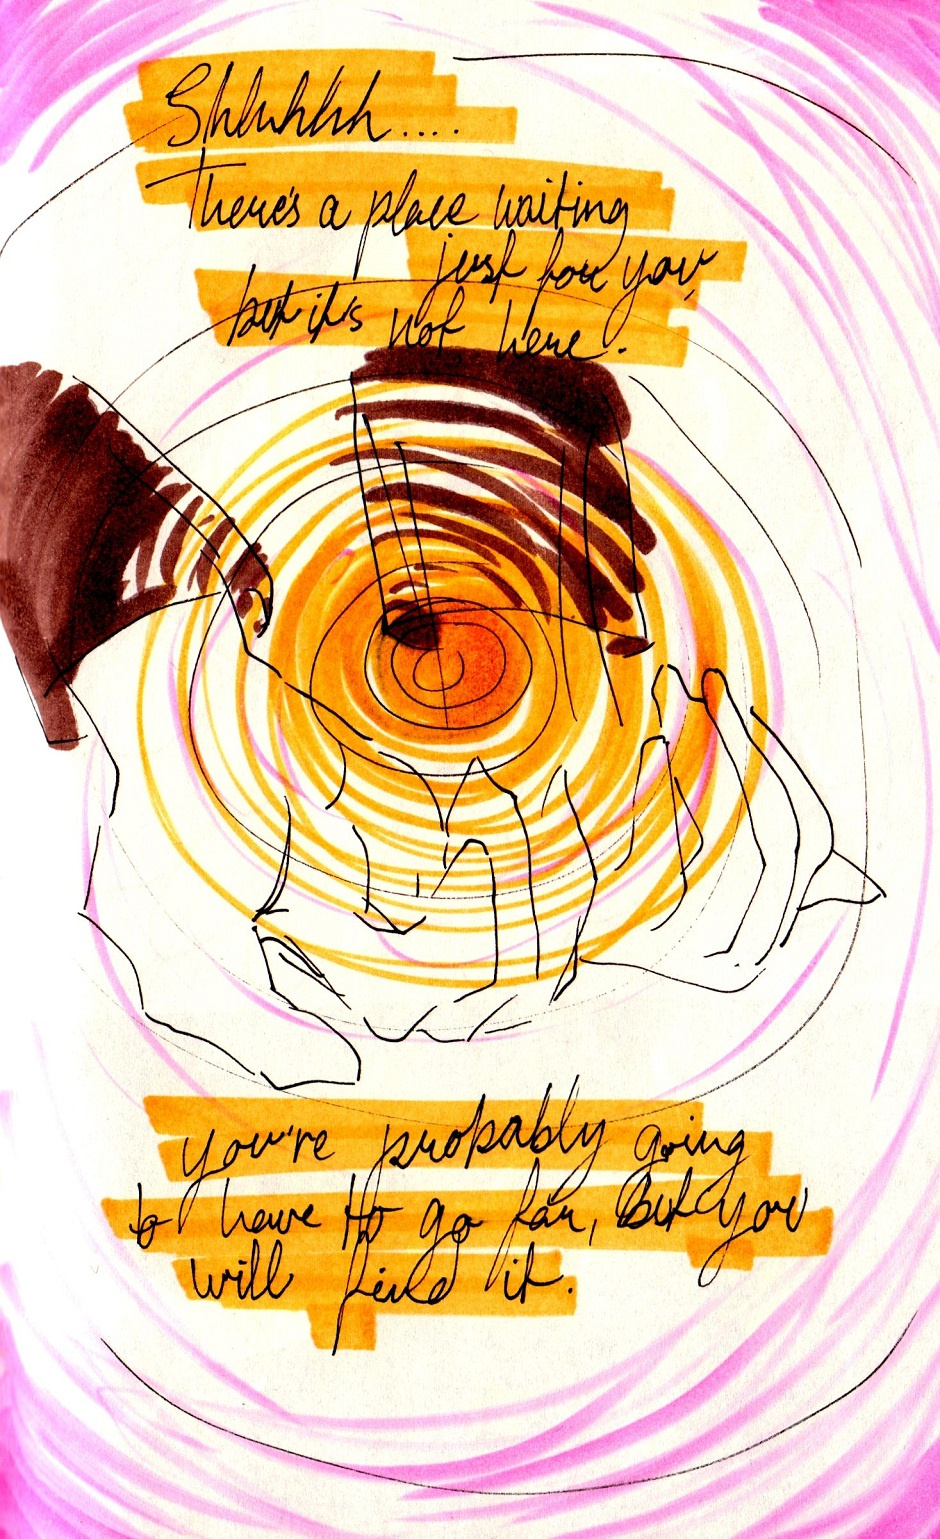 Shhhhhh....
There's a place waiting
just for you,
but it's not here.
you're probably going
to have to go far, But you
will find it.